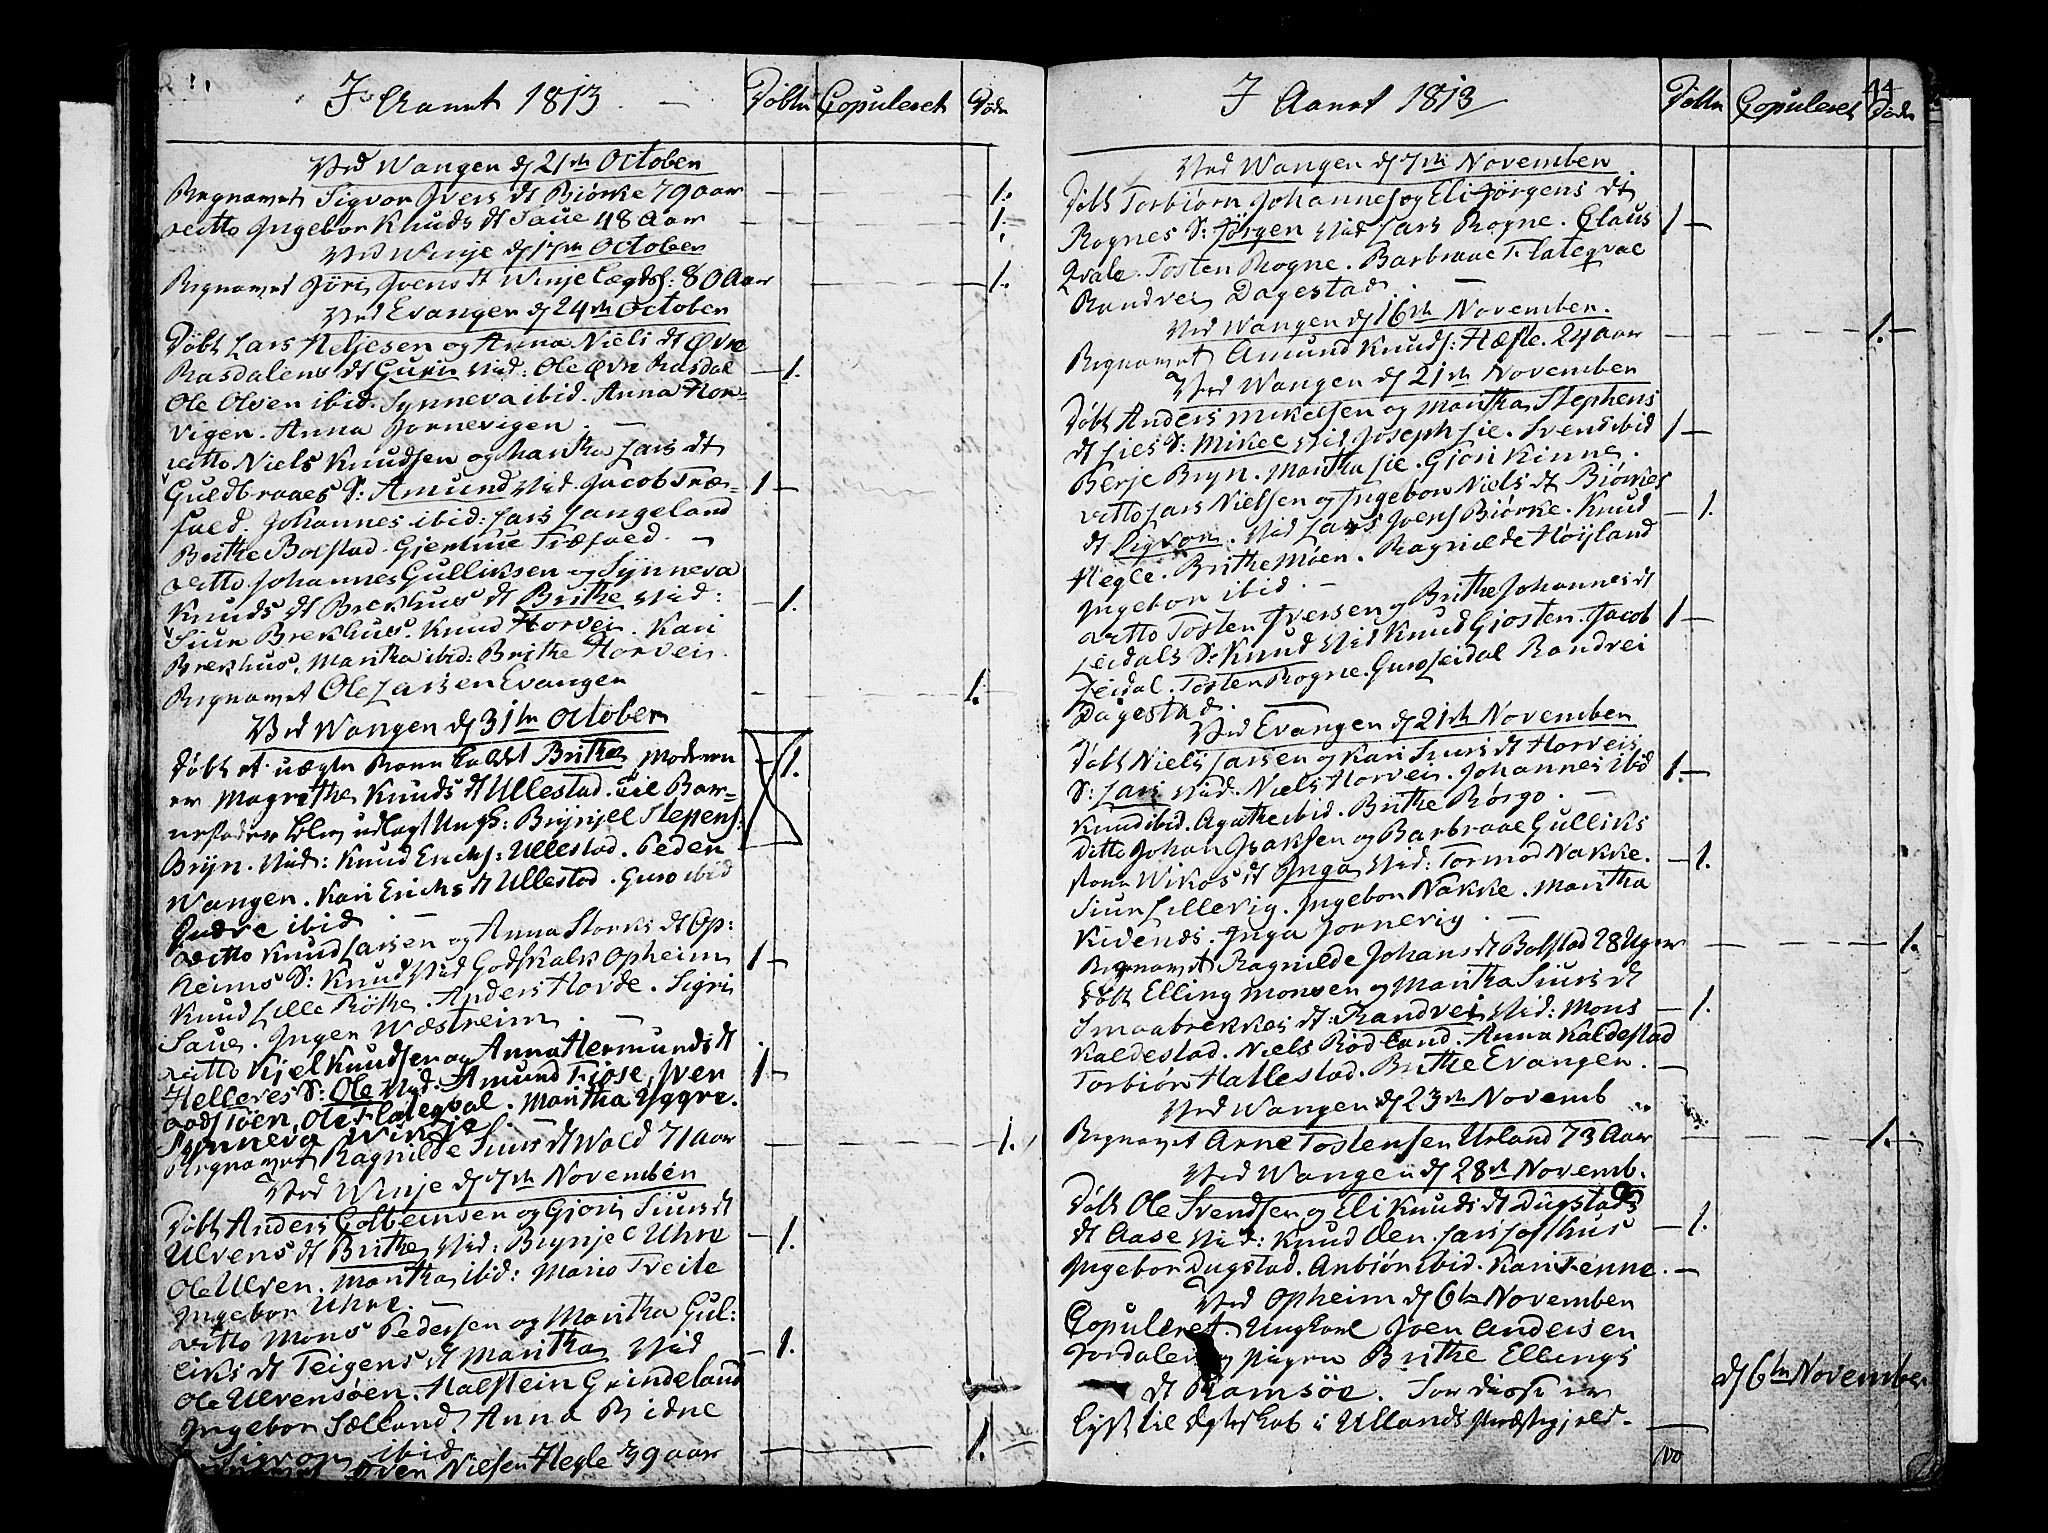 I Aaret 1813
Døbte Copuleret Døde
Ved Wangen d 21de October
Begravet Sigvor Ivers dt Biørke 79 aar 1.
ditto Ingebor Knuds dt Saue 48 Aar 1.
Ved Winje d 17de October
Begravet Jöri Ivers dt Winje Lægds: 80 Aar 1.
Ved Evanger d 24de October
Døbt Lars Heljesen og Anna Niels dt Øvre
Rasdalens dt Guri Vid: Ole Øvre Rasdal 1.
Ole Olsen ibid. Synneva ibid. Anna Hor-
vigen. Anna Jornevigen. —
ditto Niels Knudsen og Maritha Lars dt
Guldbraaes S: Amund Vid. Jacob Træ- 1
faed. Johannes ibid: Lars Langeland
Brithe Bolstad. Gjertrue Træfaed. —
ditto Johannes Gulliksen og Synneva
Knuds dt Brekhus dt Brithe Vid: 1.
Siur Brekhus. Knud Horvei. Kari
Brekhus, Maritha ibid: Brithe Horvei.
Begravet Ole Larsen Evanger 1.
Ved Wangen d 31te October
Døbt et uægte Barn kaldet Brithe Moderen 1.
er Magrethe Knuds dt Ullestad. til Bar-
nefader blev udlagt Ungk: Brynjel Steffens:
Bryn. Vid: Knud Erichs: Ullestad. Peder
Wangen. Kari Erichs dt Ullestad. Guro ibid
ibid —
ditto Knud Larsen og Anna Storks dt Op:
heims S: Knud Vid Godskalk Opheim 1
Knud Lille Röthe. Anders Horde. Sigri
Saue. Inger Wæstreim. —
ditto Kjel Knudsen og Anna Hermunds dt
Helleres S: Ole Vid. Amund Fiose, Iver 1
Töen, Ole Flateqval. Maritha Yggre.
Synneva Winje
Begravet Ragnilde Siurs dt Wold 71 Aar 1.
Ved Winje d 7de November
Døbt Anders Colbeinsen og Gjori Siurs dt
Ulvens dt Brithe Vid: Brynjel Uhre 1.
Ole Ulven. Maritha ibid: Mario Treite
Ingebor Uhre. —
ditto Mons Pedersen og Maritha Gul:
liks dt Teigens dt Maritha Vid 1.
Ole Ulvensöen. Halstein Grindeland
Ingebor Sælland. Anna Bidne
Sigvor ibid
Iver Nielsen Hegle 39 aar 1.
I Aaret 1813
Døbte Copuleret Døde
44
Ved Wangen d 7de November
Døbt Torbiørn Johannes: og Eli Jørgens dt
Rognes S: Jørgen Vid Lars Rogne. Claus 1
Qvale. Tosten Rogne. Barbraae Flateqval
Randvei Dagestad. —
Ved Wangen d 16de November.
Begravet Amund Knuds: Hæfte. 24 aar 1.
Ved Wangen d 21de November
Døbt Anders Mikelsen og Maritha Stephens
dt Lies S: Mikel Vid Joseph Lie. Svend ibid 1
Berje Bryn. Maritha Lie. Gjori Kinne.
ditto Lars Nielsen og Ingebor Niels dt Biørkes
dt Sigvor. Vid Lars Ivers Biørke. Knud 1.
Hegle. Brithe Möen. Ragnilde Höyland
Ingebor ibid. —
ditto Tosten Iversen og Brithe Johannes dt
Leidals S: Knud Vid Knud Gjosten. Jacob 1
Leidal. Tosten Rogne. Guro Leidal Randvei
Dagestad. —
Ved Evanger d 21de November
Døbt Niels Larsen og Kari Siurs dt Horveis
S: Lars Vid. Niels Horvei. Johannes ibid 1
Knud ibid. Agathe ibid. Brithe Rörgo. —
Ditto Johan Isaksen og Barbraae Gulliks
Store Wikes dt Inga Vid: Tormod Nakke. 1.
Siur Lillevig. Ingebor Nakke. Maritha
Kidends. Inga Jornevig. —
Begravet Ragnilde Johans dt Bolstad 28 Uger 1.
Døbt Elling Monsen og Maritha Siurs dt
Smaabrekkes dt: Randvei Vid: Mons 1.
Kaldestad. Niels Rödland. Anna Kaldestad
Torbiör Hallestad. Brithe Evanger. —
Ved Wangen d 23de Novemb
Begravet Arne Tostensen Urland 73 Aar 1.
Ved Wangen d 28de Novemb.
Døbt Ole Svendsen og Eli Knuds dt Dugstads
dt Aase Vid: Knud Øen. Lars Lofthus 1.
Ingebor Dugstad. Anbiør ibid. Kari Tenne. —
Ved Opheim d 6te November
Copuleret. Ungkarl Iver Andersen
Jordalen og Pigen Brithe Ellings
dt Ramsöe. For disse er d 6te November
Lyst til Ægteskab i Ullands Præstegjeld. —